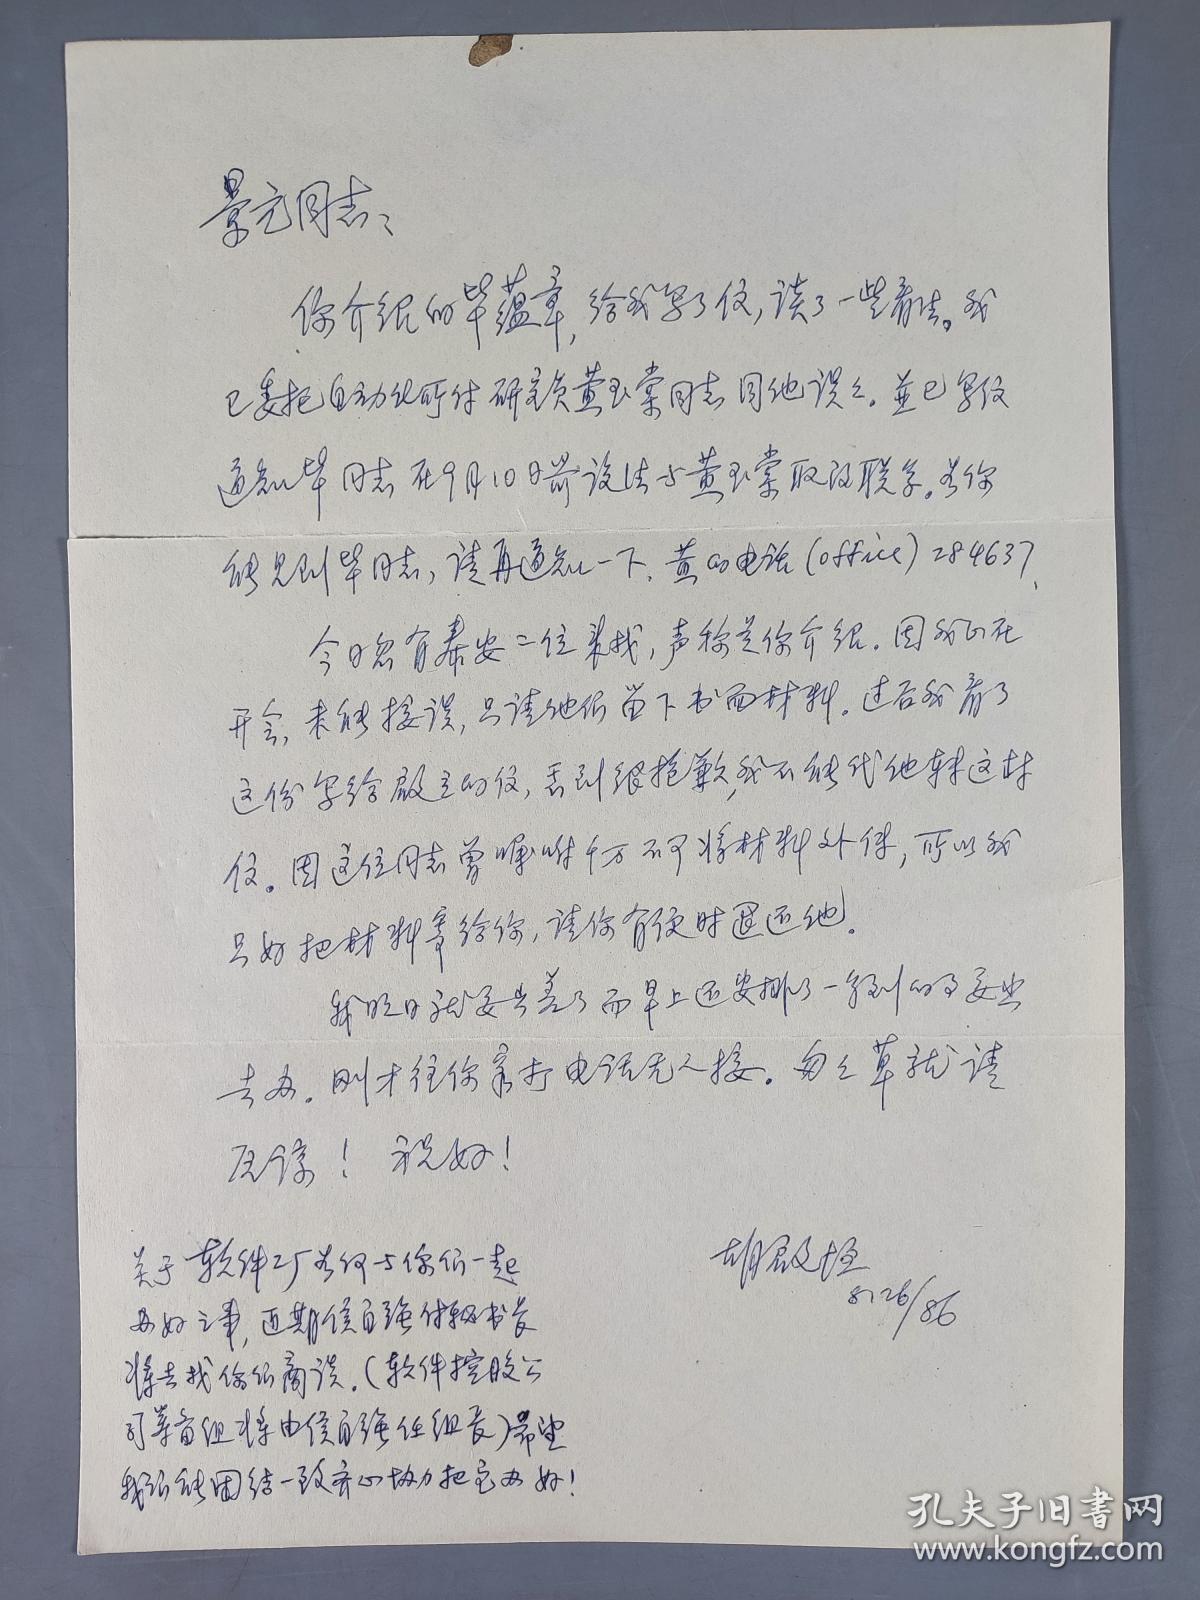 景元同志：
你介绍的毕蕴章，给我写了信，谈了一些看法。我
已委托自动化所付研究员黄玉棠同志同他谈谈。並已写信
通知毕同志在9月10日前设法与黄玉棠取得联系。若你
能见到毕同志，请再通知一下。黄的电话(office)284637。
今日忽有泰安二位来找，声称是你介绍。因我正在
开会，未能接谈，只请他们留下书面材料。过后我看了
这份写给 的信，感到很抱歉，我不能代他转这封
信。因这位同志曾嘱咐千万不可将材料外传，所以我
只好把材料寄给你，请你有便时退还他。
我明日就要出差了而早上还安排了一 的事要出
去办。刚才往你家打电话无人接。匆匆草就请
原谅！ 祝好！
胡启恒
8.26/86
关于软件工厂若何与你们一起
办好之事，近期侯自强付秘书长
将去找你们商谈。(软件控股公
司筹备组将由侯自强任组长)希望
我们能团结一致齐心协力把它办好！
孔夫子旧书网
www.kongfz.com